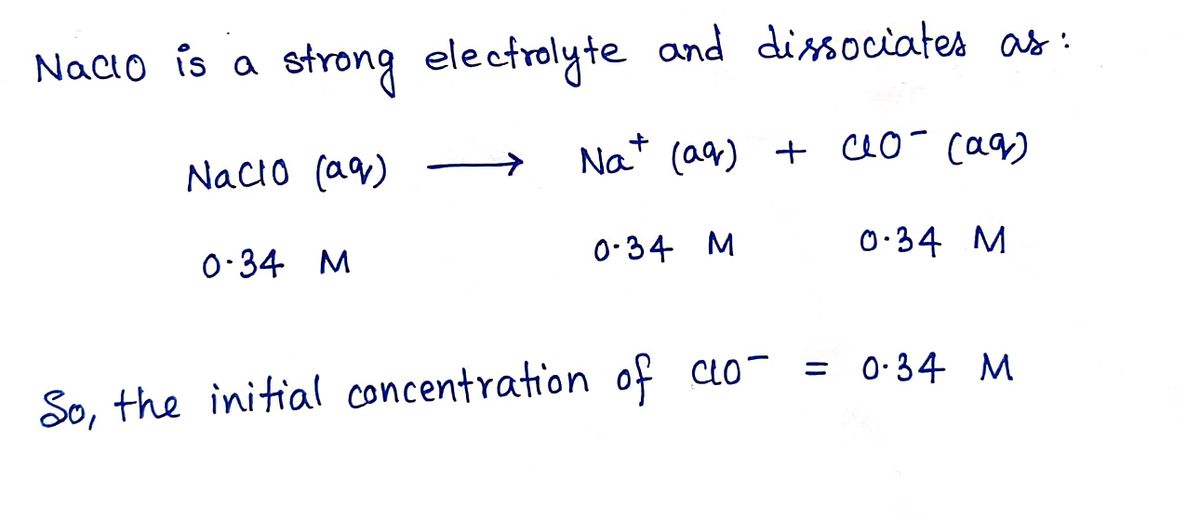 NaClO is a strong electrolyte and dissociates as :
NaClO (aq) ⟶ Na⁺ (aq) + ClO⁻ (aq)
0.34 M 0.34 M 0.34 M
So, the initial concentration of ClO⁻ = 0.34 M